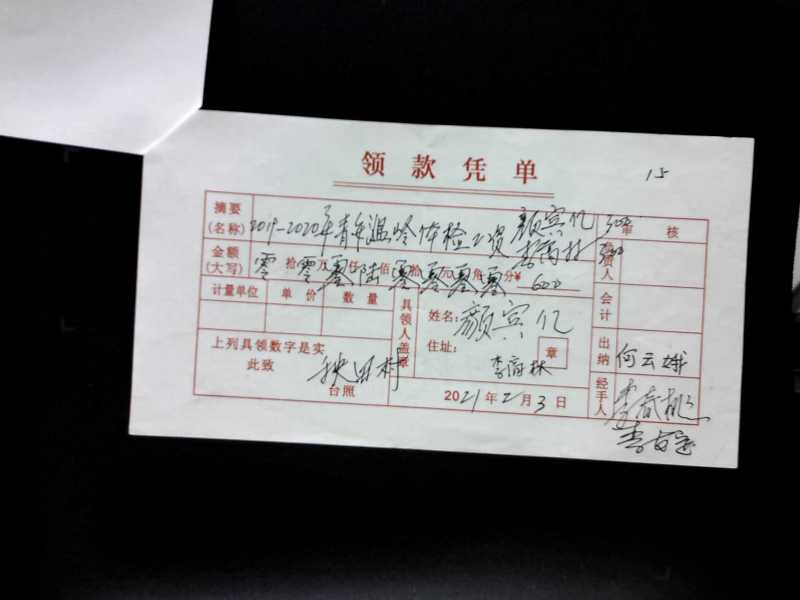 15
领款凭单
摘要 2019-2020年青年温岭体检工资 颜宾亿 300 审核
(名称) 李高林 300
金额 零拾零万零仟陆佰零拾零元零角零分¥ 600 负责人
(大写)
计量单位 单价 数量 具领人盖章 姓名: 颜宾亿 会计
住址: 李高林 章
上列具领数字是实 出纳 何云娥
此致 秧田村
台照 2021年2月3日 经手人 李春桃